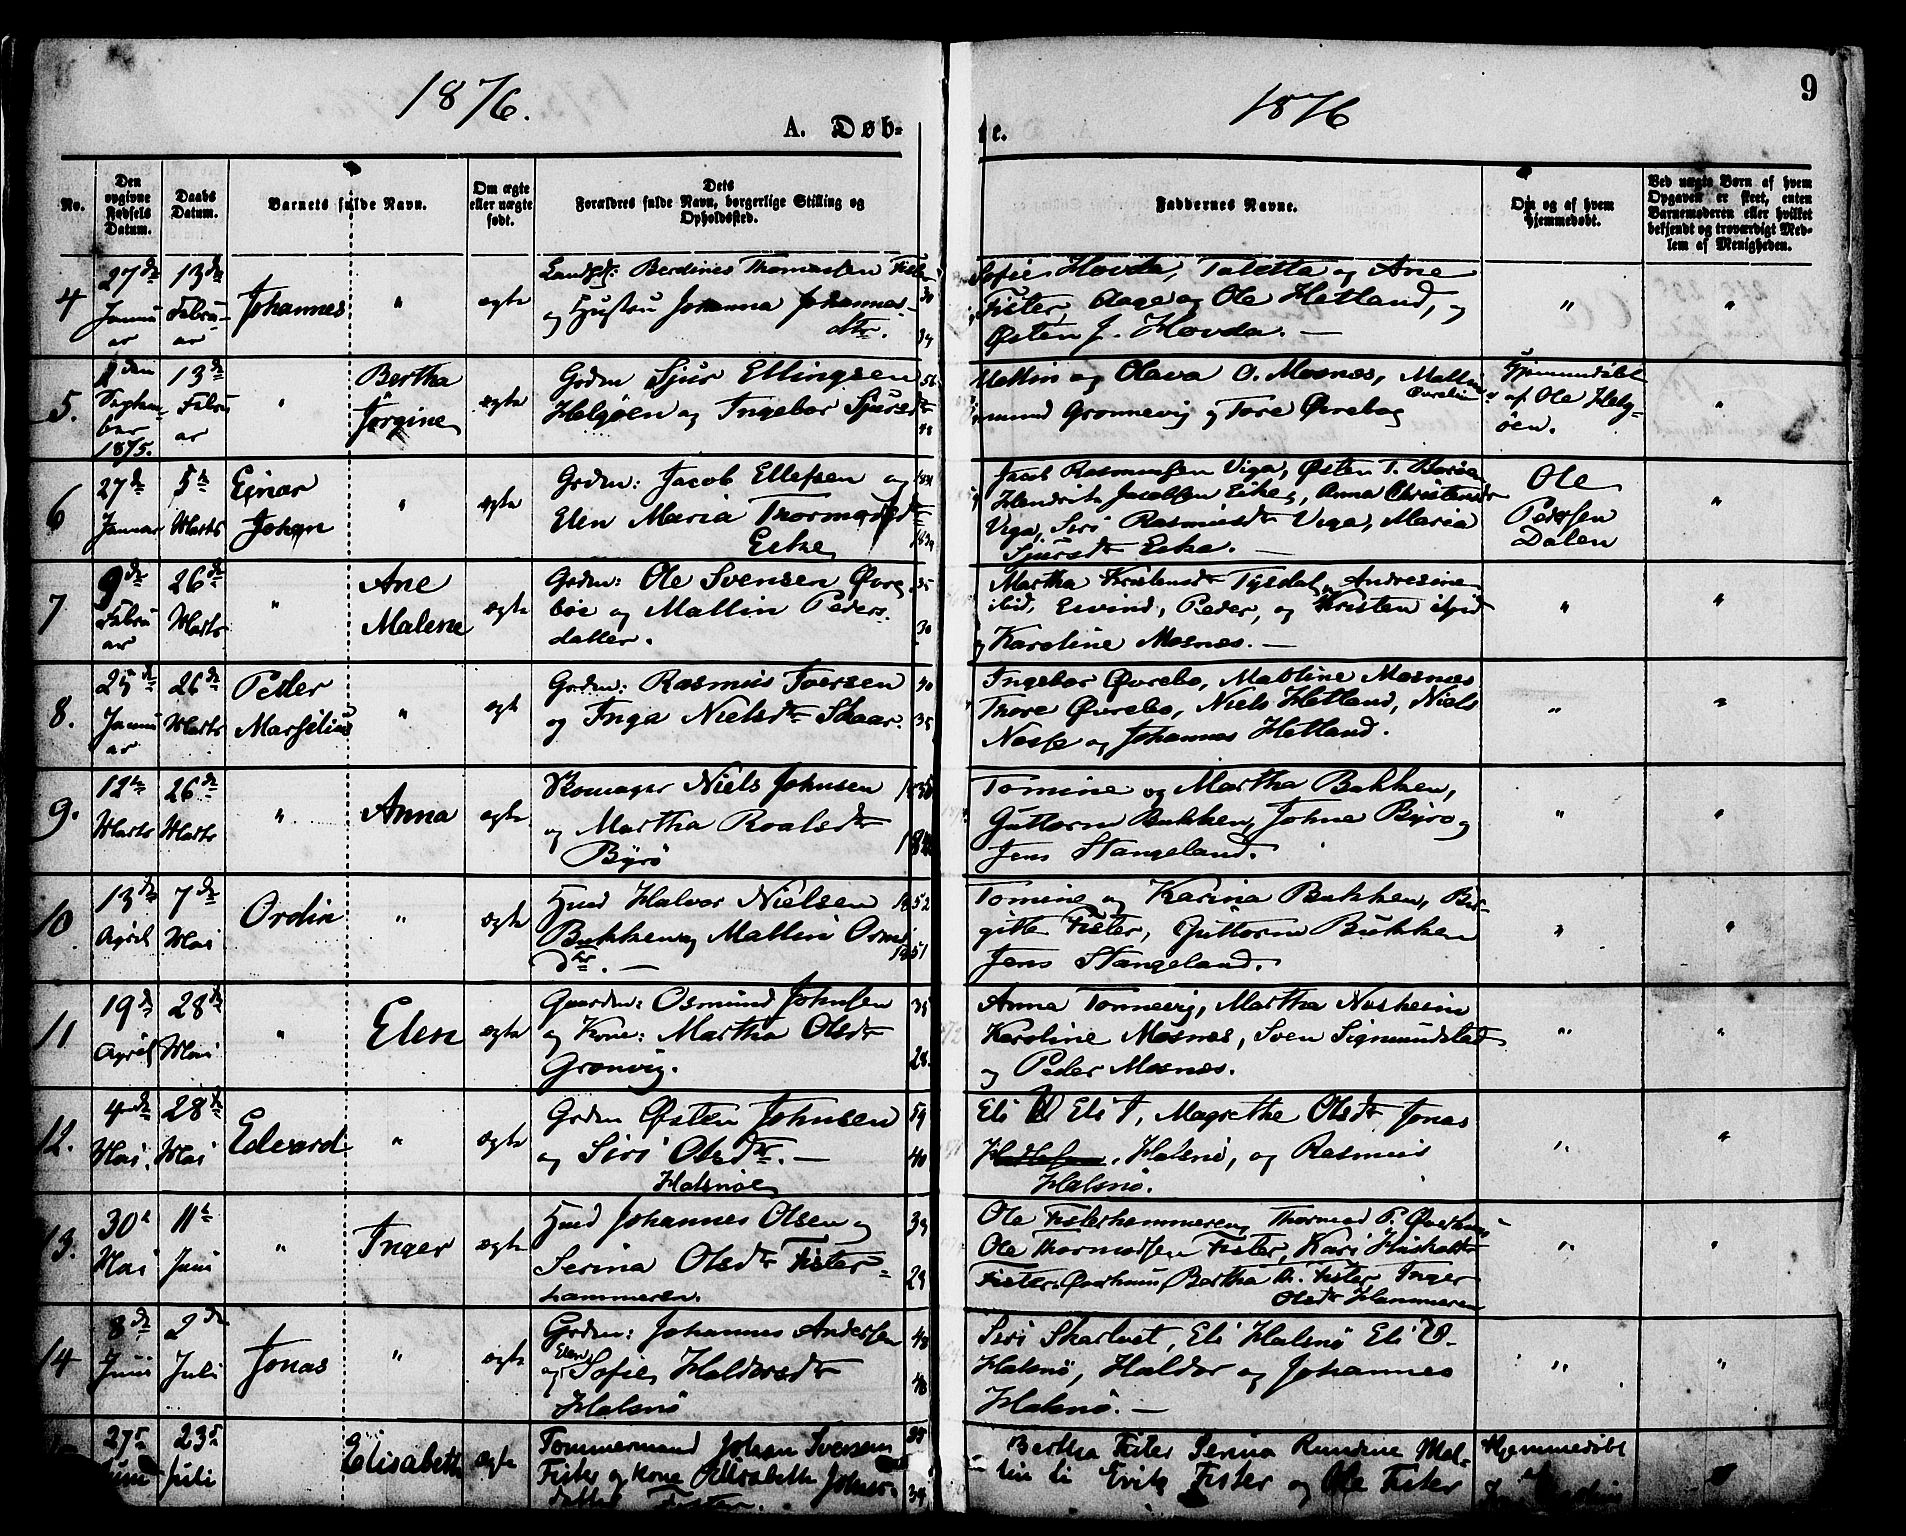 1876.
1876
9
A. Døb-
te.
No.
Den opgivne Fødsels Datum.
Daabs Datum.
Barnets fulde Navn.
Om ægte eller uægte født.
Forældres fulde Navn, borgerlige Stilling og Opholdssted.
Faddernes Navne.
Om og af hvem hjemmedøbt.
Ved uægte Børn af hvem Opgaven er skeet, enten Barnemoderen eller hvilket bekjendt og troværdigt Medlem af Menigheden.
4
27de Januar
13de Februar
Johannes
"
ægte
Berdines Thomassen
og Hustru Johanna Johannes-
dtr.
Sofie Hovda, Taletta og Ane
Fister, Aage og Ole Hetland, og
Østen J. Hovda. —
"
"
5.
September 1875.
13de Februar
"
Bertha
Jørgine
ægte
Grdm Sjur Ellingsen
Helgøen og Ingebor Sjursdtr
56
Mallin og Olava O. Mosnæs,
Grønnevig og Tore Øvrebøe
Hjemmedøbt
af Ole Helg-
øen.
"
6
27de Januar
5te Marts
Ejnar
Johan
"
ægte
Grdm: Jacob Ellefsen og
Elen Maria
Eike
Jacob Rasmussen Viga, Østen T.
Hendrik Jacobsen Eike, Anna
Viga, Siri Rasmusdtr Viga, Maria
Sjursdtr Eike. —
Ole
Pedersen
Dalen
"
7
9de Februar
26de Marts
"
Ane
Malene
ægte
Grdm: Ole Svensen Øvre
bøe og Mallin Peders
datter.
35
30
Martha Tysdal, Andresine
ibid, Eivind, Peder, og Kristen ibid
og Karoline Mosnæs. —
"
"
8.
25de Januar
26de Marts
Peder
Marselius
"
ægte
Grdm: Rasmus Iversen
og Inga Nielsdtr Skaar.
30
35
Ingebor Øvrebø, Malline Mosnæs
Thore Øvrebø, Niels Hetland, Niels
og Johannes Hetland.
"
"
9.
12te Marts
26de Marts
"
Anna
ægte
Skomager Niels Johnsen
og Martha Roalsdtr
Byrø
Tomine og Martha Bakken,
Guttorm Bakken, Johne Byrø og
Jens Stangeland.
"
"
10
13de April
7de Mai
Ordin
"
ægte
Hmd Halvor Nielsen 1852
Bakken og Mallin Orms 1851
dtr. —
Tomine og Karina Bakken, Bir-
gitte Fister, Guttorm Bakken
Jens Stangeland.
"
"
11
19de April
28de Mai
"
Elen
ægte
Gaardm: Osmund Johnsen
og Kone: Martha Olsdtr
Grønvig.
35
28.
Anna Tonnevig, Martha Nesheim
Karoline Mosnæs, Sven Sigmundstad
og Peder Mosnæs.
"
"
12.
4de Mai.
28de Mai
Edvard
"
ægte
Grdm Østen Johnsen
og Siri Olsdtr. —
Halsnøe
39
40
Eli Eli I, Magrethe Olsdtr Jonas
Halsnø, og Rasmus
Halsnø.
"
"
13.
30te Mai
11te Juni
"
Inger
ægte
Hmd Johannes Olsen og
Serina Olsdtr Fister-
hammeren.
39
29
Ole Fisterhammeren, Thormod P.
Ole Thormodsen Fister, Kari
Fister, Bertha A. Fister, Inger
Olsdtr Hammeren
"
"
14
8de Juni
2den Juli
Jonas
"
ægte
Grdm: Johannes Andersen
og Elen Sofie Haldorsdtr
Halsnø
48
48
Siri Skartvet, Eli Halsnø Eli O.
Halsnø, Haldor og Johannes
Halsnø. —
"
"
27de Juni
23de Juli
Elisabeth
ægte
Tommermand Johan Svensen
Fister og Kone Elisabeth Johns-
datter Fister.
Bertha Fister Serina Rundene Mal-
lin li Erik Fister og Ole Fister
Hjemmedøbt
af